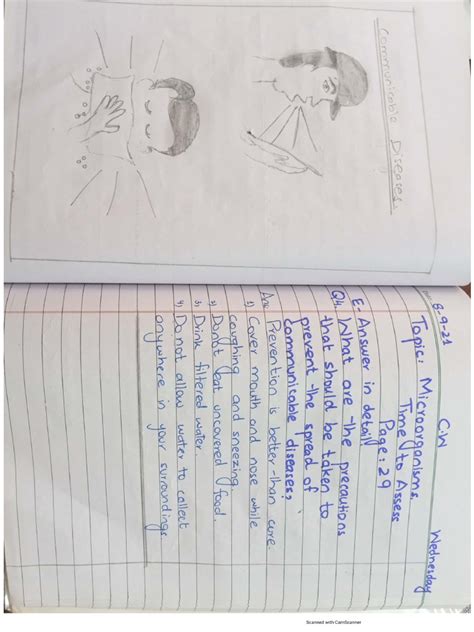 Communicable Diseases.
8-9-21
C.W
Wednesday
Topic: Microorganisms.
Time to Assess
Page: 29
E- Answer in detail.
Q4. What are the precautions
that should be taken to
prevent the spread of
communicable diseases,
Ans Prevention is better than cure.
1) Cover mouth and nose while
coughing and sneezing.
2) Don't eat uncovered food.
3) Drink filtered water.
4) Do not allow water to collect
anywhere in your surroundings
Scanned with CamScanner